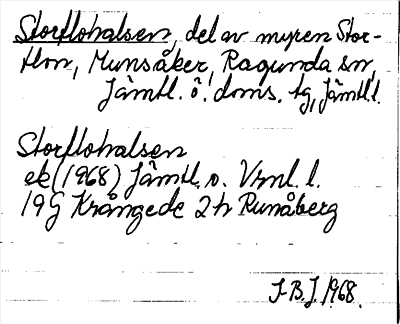 Storflohalsen, del av myren Stor-
flon, Munsåker, Ragunda sn,
Jämtl. ö. doms. tg, Jämtl.l.
Storflohalsen
ek (1968) Jämtl. o. Vrnl. l.
19G Krångede 2h Runåberg
J-B.J. 1968.